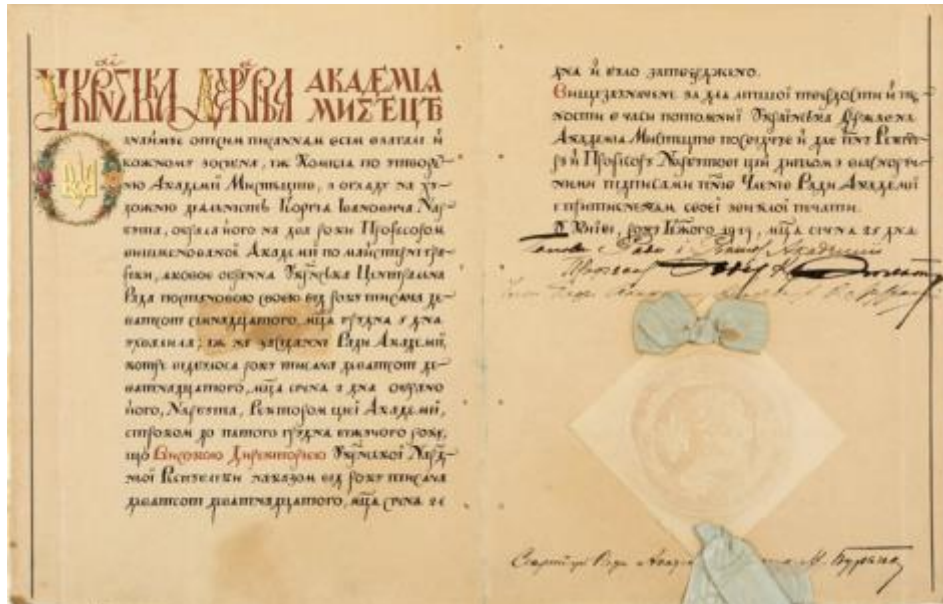 УКРАЇНСЬКА ДЕРЖАВНА АКАДЕМІЯ
МИСТЕЦТВ
ознаймує оттсим писаннам всѣм взагалі й
кожному зосібна, иж Комісіа по утворе-
ню Академії Мистецтв, з огладу на ху-
дожню діальність Георгіа Івановича Нар-
бута, обрала його на два роки Професором
вищеменованої Академії по майстерні гра-
фіки, а
Рада постановою своєю від року тисяча де-
ватсот сімнадцатого, мца грудна 5 дна
ухвалила; иж на засіданні Ради Академії,
котре відбулоса року тисача деватсот де-
ватнадцатого, мца січна 2 дна обрано
його, Нарбута, Ректором цієї Академії,
строком до патого грудна біжачого року,
що Високою Директорією Української Народ-
ної Республіки наказом від року тисача
деватсот деватнадцатого, мца січна 24
дна й було затверджено.
Вищезазначене за для ліпшої твердости й
ности в часи потомні Українська Державна
Академіа Мистецтв посвідчує й дає тому Ректо-
ру й Професору Нарбутові цей диплом з власноруч-
ними підписами Членів Ради Академії
і притисненам своєї звиклої печати.
У Київі, року Божого 1919, мца січна 25 дна
Голова Ради і Ректор Академії
Професор
Секретар Ради Академії М. Бурачек